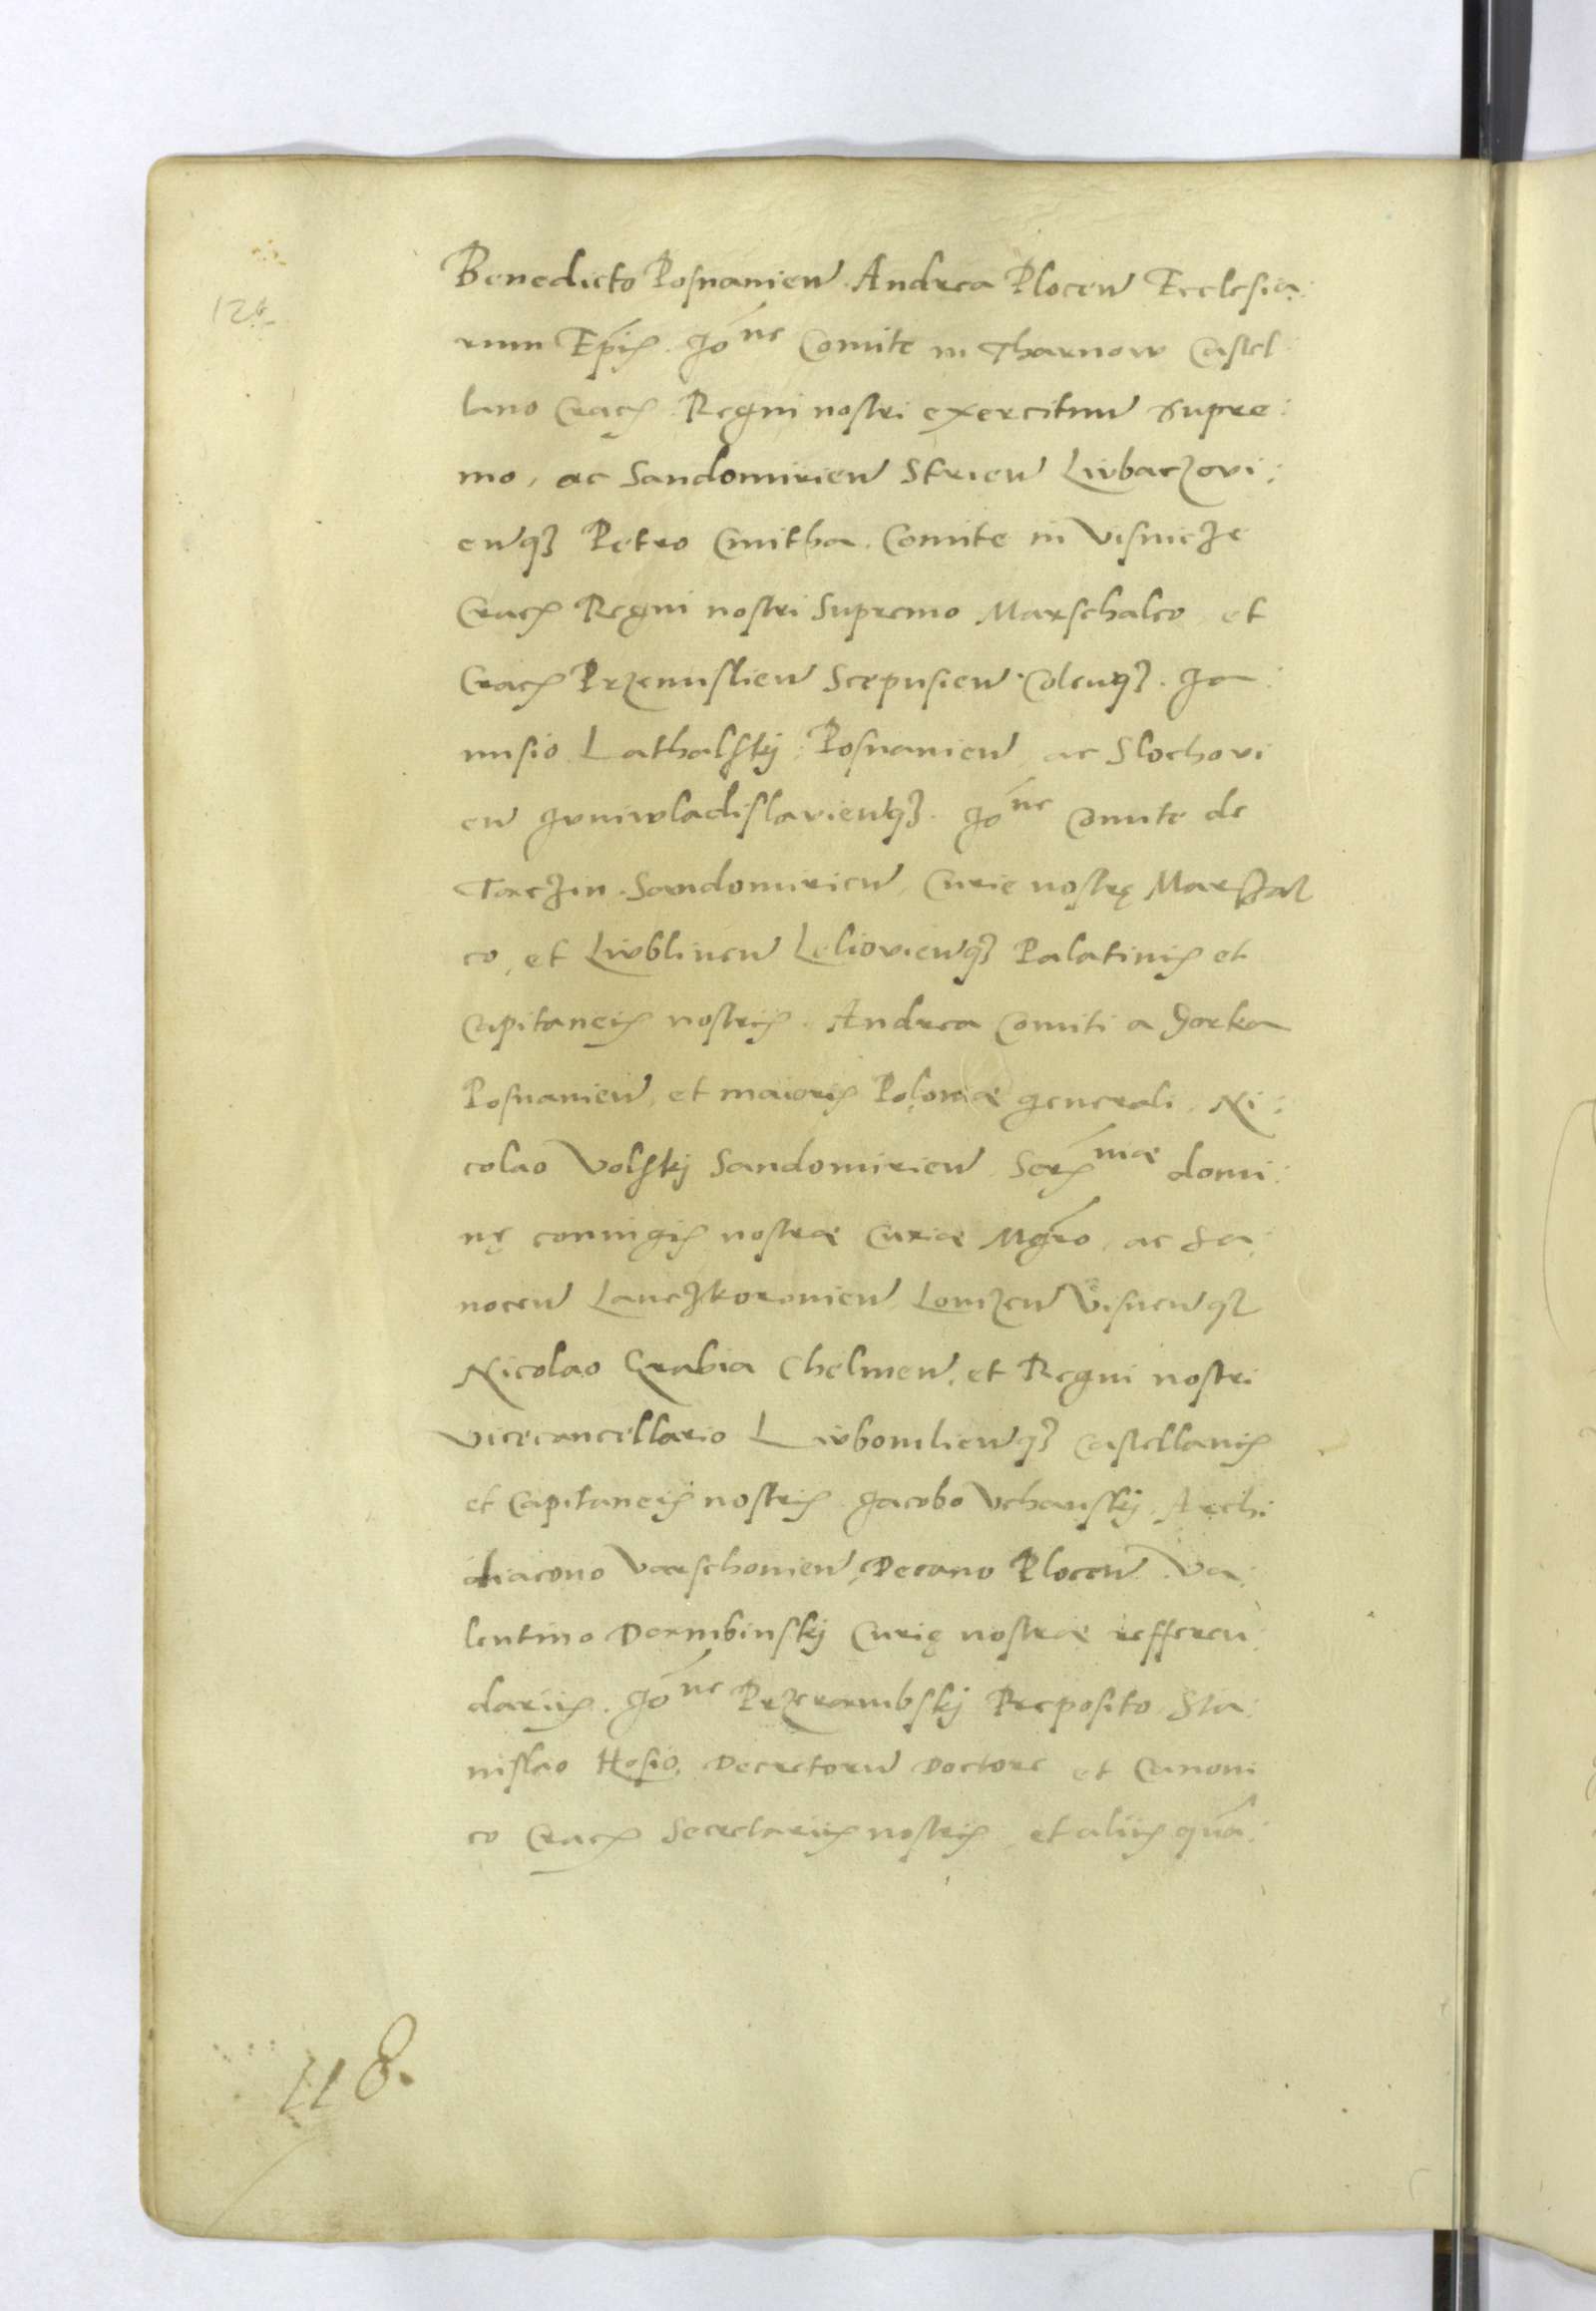 Benedicto Posnanien Andrea Plocen Ecclesia:
rum Ep̃is. Jo͂ne Comite in Tharnow Castel
lano Crac. Regni nostri exercituum supre:
mo, ac Sandomirien Strien Liubaczovi:
enq3 Petro Cmitha Comite in Visnicze
Crac. Regni nostri Supremo Marschalco et
Crac. Przemislien Scepusien Colenq3. Ja:
nusio Lathalskij Posnanien ac Slochovi
en Juniwladislavienq3. Jo͂ne Comite de
Tanczin Sandomirien Curie nostrę Marschal
co, et Liublinen Lelovienq3 Palatinis et
Capitaneis nostris. Andrea Comiti a Gorka
Posnanien, et maioris Poloniæ generali. Ni:
colao Volskij Sandomirien Ser.mæ domi:
nę coniugis nostræ Curiæ Mgr̃o, ac Sa:
nocen Lanczkoronien Lomzen Visnenq3
Nicolao Grabia Chelmen, et Regni nostri
Vicecancellario Liubomlienq3 Castellanis
et Capitaneis nostris. Jacobo Vchanskij Archi
diacono Varschovien, Decano Plocen. Va:
lentino Dembinskij Curię nostræ refferen:
dariis. Jo͂ne Przerembskij Preposito. Sta:
nislao Hosio, Decretorum Doctore et Canoni
co Crac. Secretariis nostris, et aliis quã:
118.